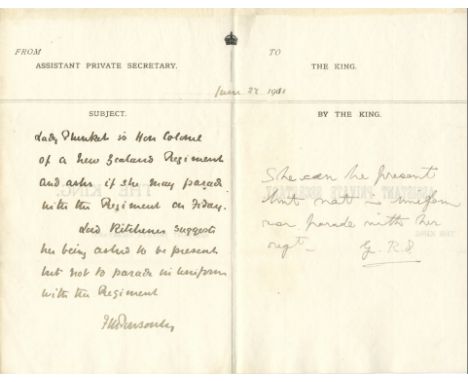 FROM
ASSISTANT PRIVATE SECRETARY.
TO
THE KING.
June 27 1911
SUBJECT.
Lady Plunket is Hon Colonel
of a New Zealand Regiment
and asks if she may parade
with the Regiment on Friday.
Lord Kitchener suggests
her being asked to be present
but not to parade in uniform
with the Regiment
FMPonsonby
BY THE KING.
She can be present
but not in uniform
nor parade with her
regt.
G.R.I.